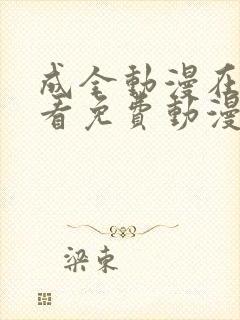 成全動漫在
看免費動漫
梁東